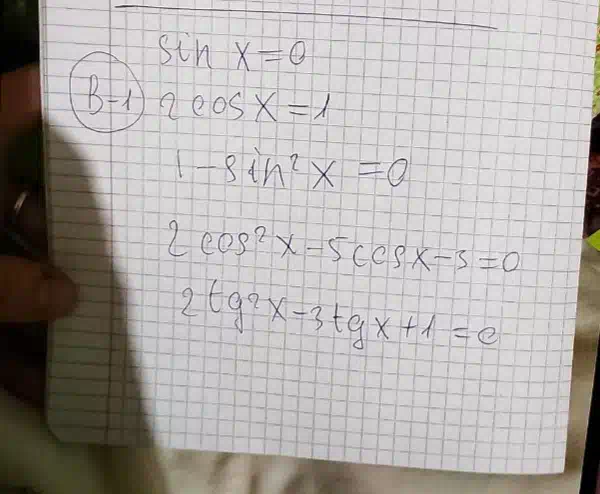 sin x = 0
В-1 2 cos x = 1
1 - sin² x = 0
2 cos² x - 5 cos x - 3 = 0
2 tg² x - 3 tg x + 1 = 0